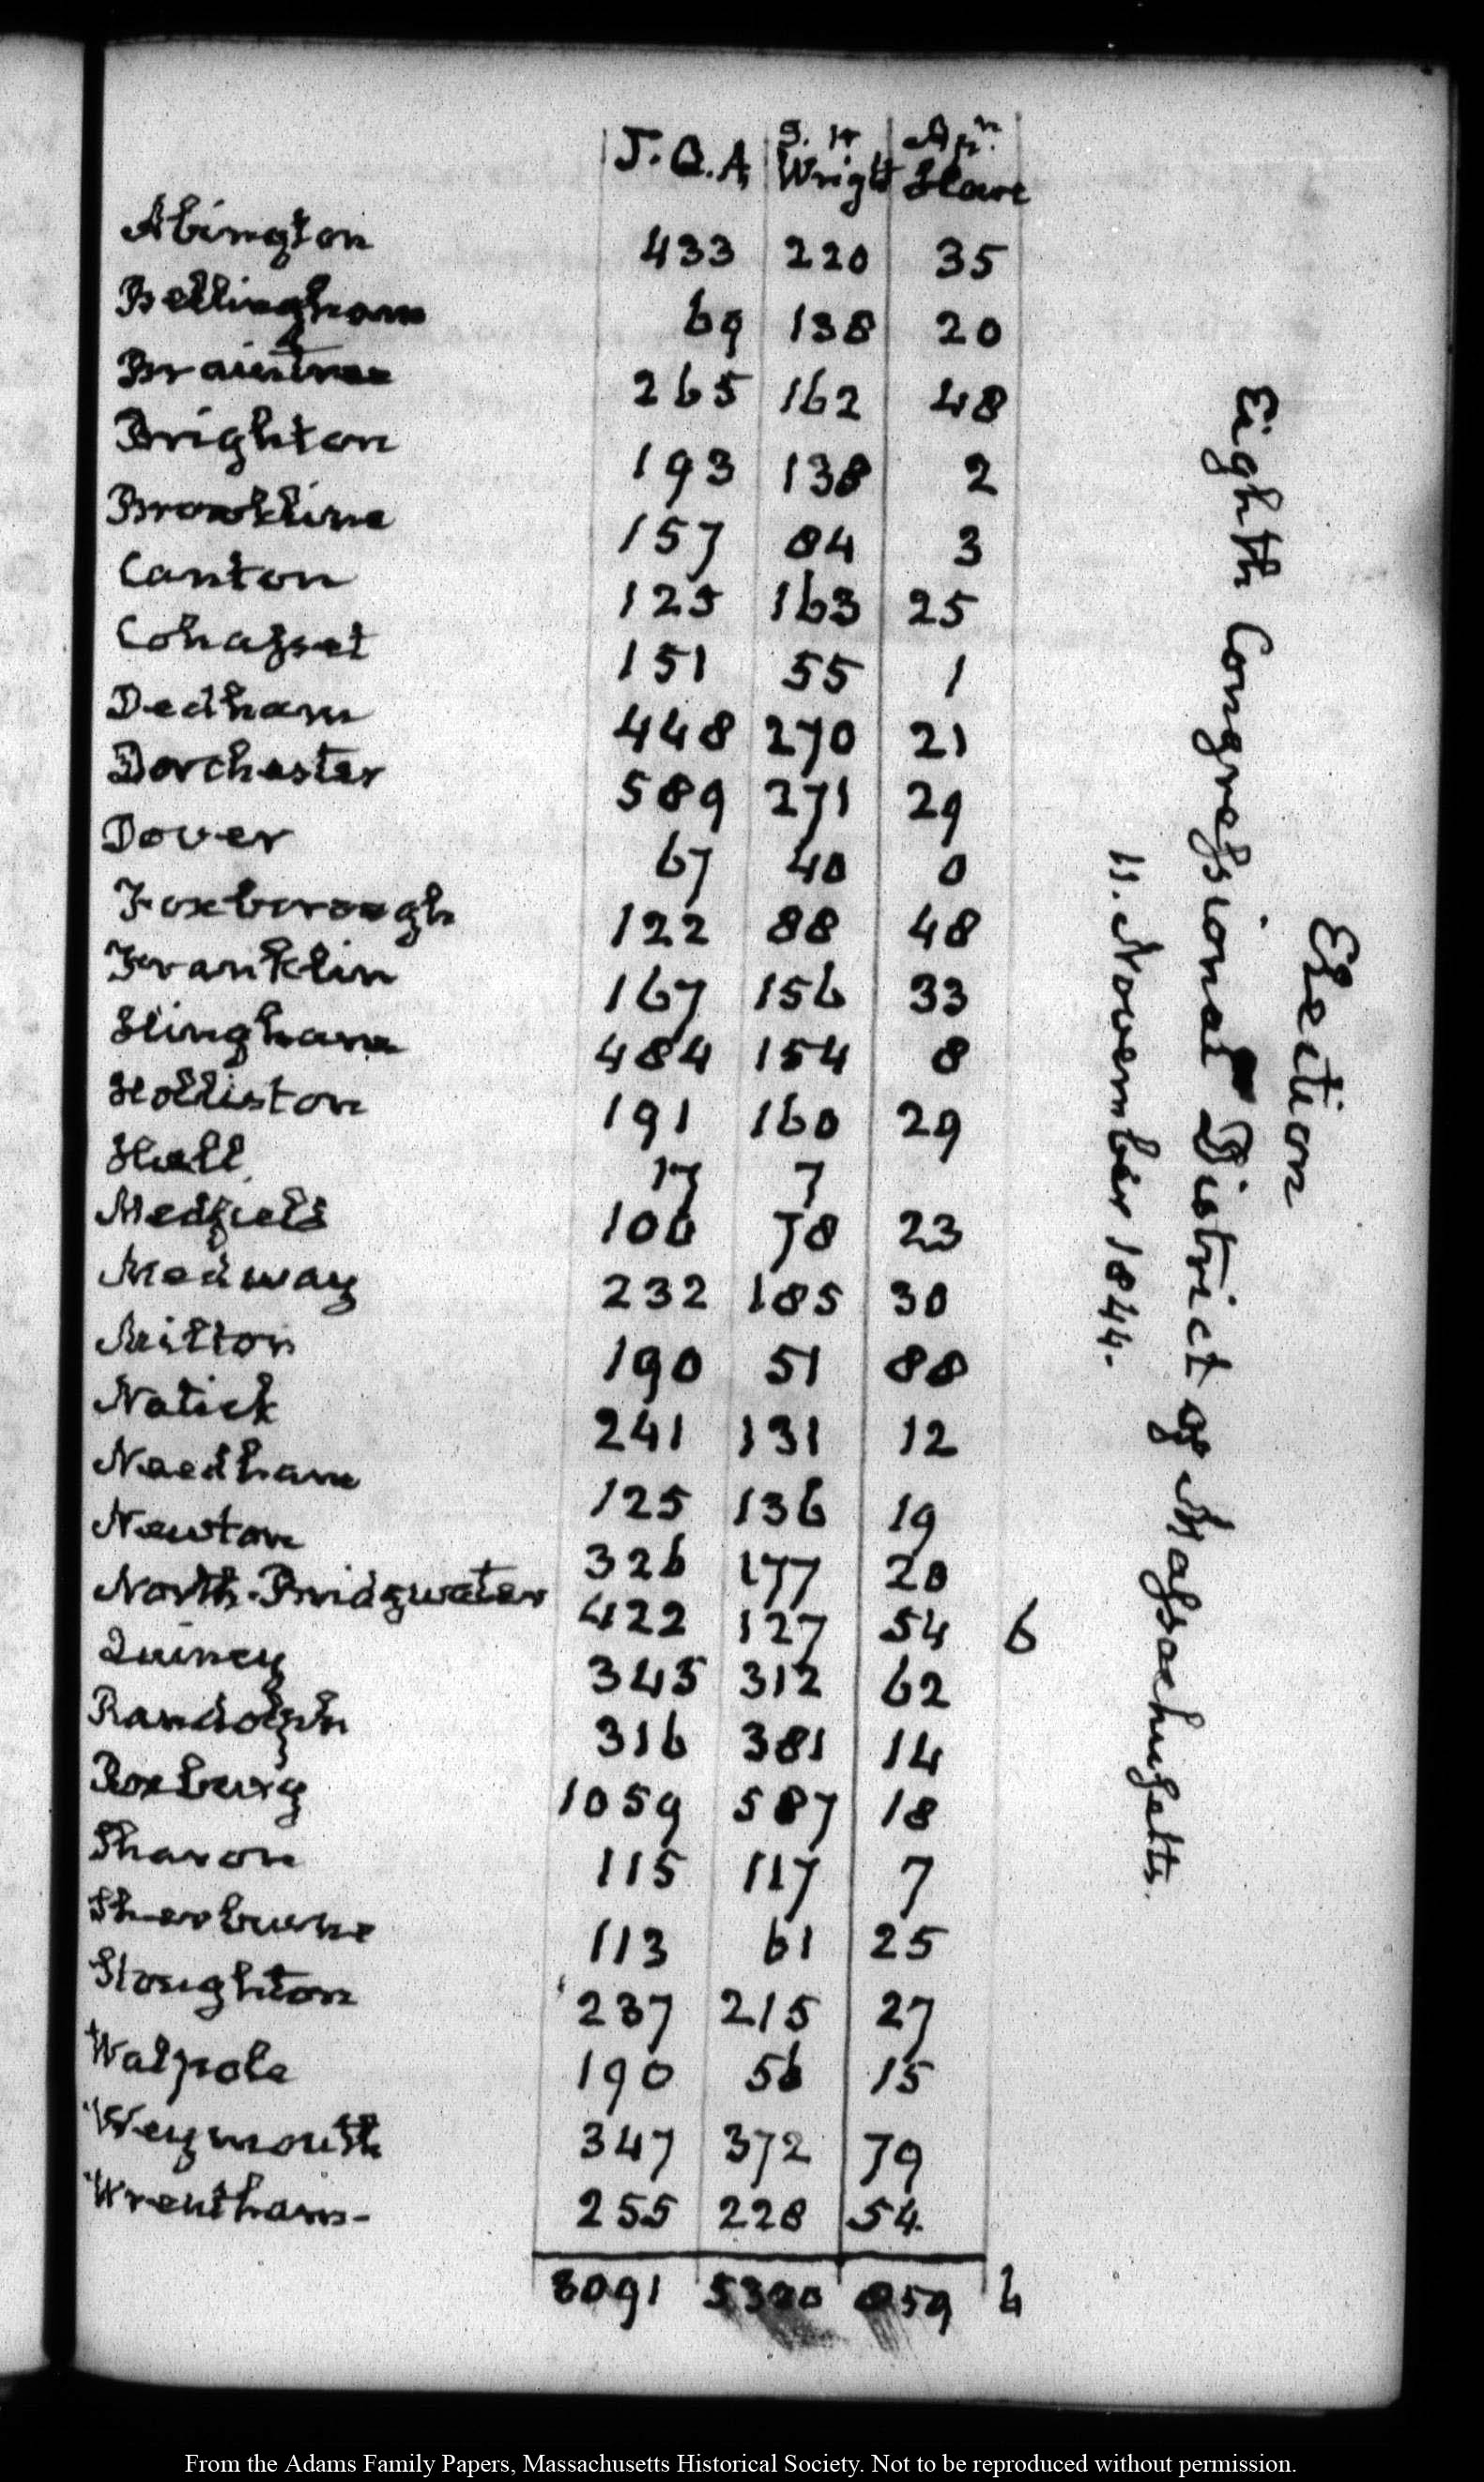 J. Q. A. S. H Wright An. Slave
Abington 433 220 35
Bellingham 69 138 20
Braintree 265 162 48
Brighton 193 138 2
Brookline 157 84 3
Canton 125 163 25
Cohasset 151 55 1
Dedham 448 270 21
Dorchester 589 271 29
Dover 67 40 0
Foxborough 122 88 48
Franklin 167 156 33
Hingham 484 154 8
Holliston 191 160 29
Hull 17 7
Medfield 100 78 23
Medway 232 185 30
Milton 190 51 88
Natick 241 131 12
Needham 125 136 19
Newton 326 177 20
North-Bridgwater 422 127 54 6
Quincy 345 312 62
Randolph 316 381 14
Roxbury 1059 587 18
Sharon 115 117 7
Sherburne 113 61 25
Stoughton 237 215 27
Walpole 190 56 15
Weymouth 347 372 79
Wrentham- 255 228 54
8091 5320 859 6
Election
Eighth Congressional District of Massachusetts.
11. November 1844.
From the Adams Family Papers, Massachusetts Historical Society. Not to be reproduced without permission.